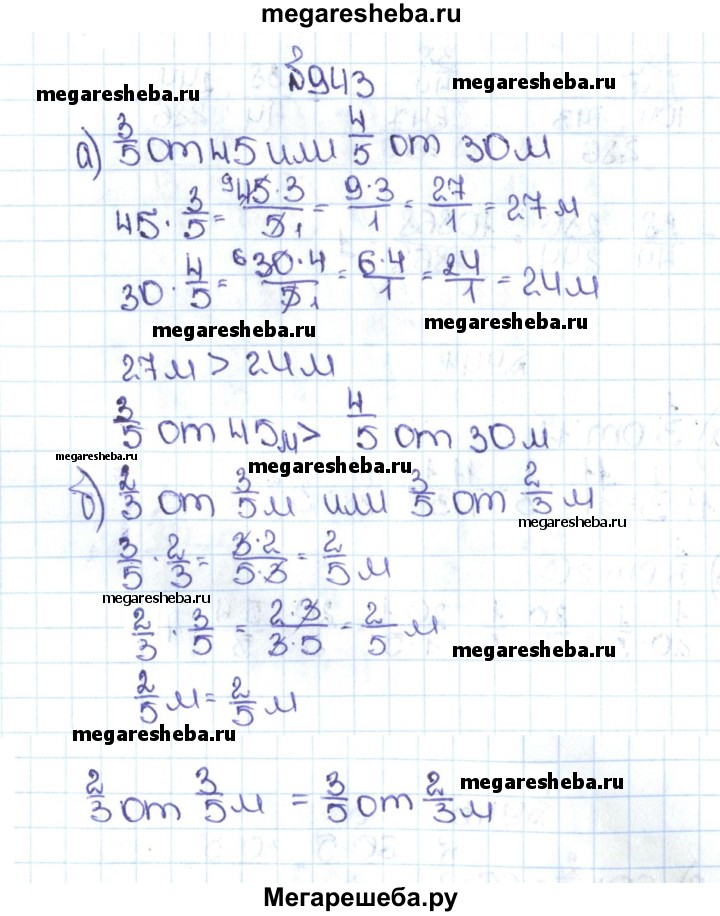 megaresheba.ru
№943
megaresheba.ru
megaresheba.ru
а) 3/5 от 45 или 4/5 от 30 м
45 · 3/5 = 9 45·3/5 1 = 9·3/1 = 27/1 = 27 м
30 · 4/5 = 6 30·4/5 1 = 6·4/1 = 24/1 = 24 м
megaresheba.ru
megaresheba.ru
27 м > 24 м
3/5 от 45 м > 4/5 от 30 м
megaresheba.ru
megaresheba.ru
б) 2/3 от 3/5 м или 3/5 от 2/3 м
megaresheba.ru
3/5 · 2/3 = 3·2/5·3 = 2/5 м
megaresheba.ru
2/3 · 3/5 = 2·3/3·5 = 2/5 м
megaresheba.ru
2/5 м = 2/5 м
megaresheba.ru
2/3 от 3/5 м = 3/5 от 2/3 м
megaresheba.ru
Мегарешеба.ру